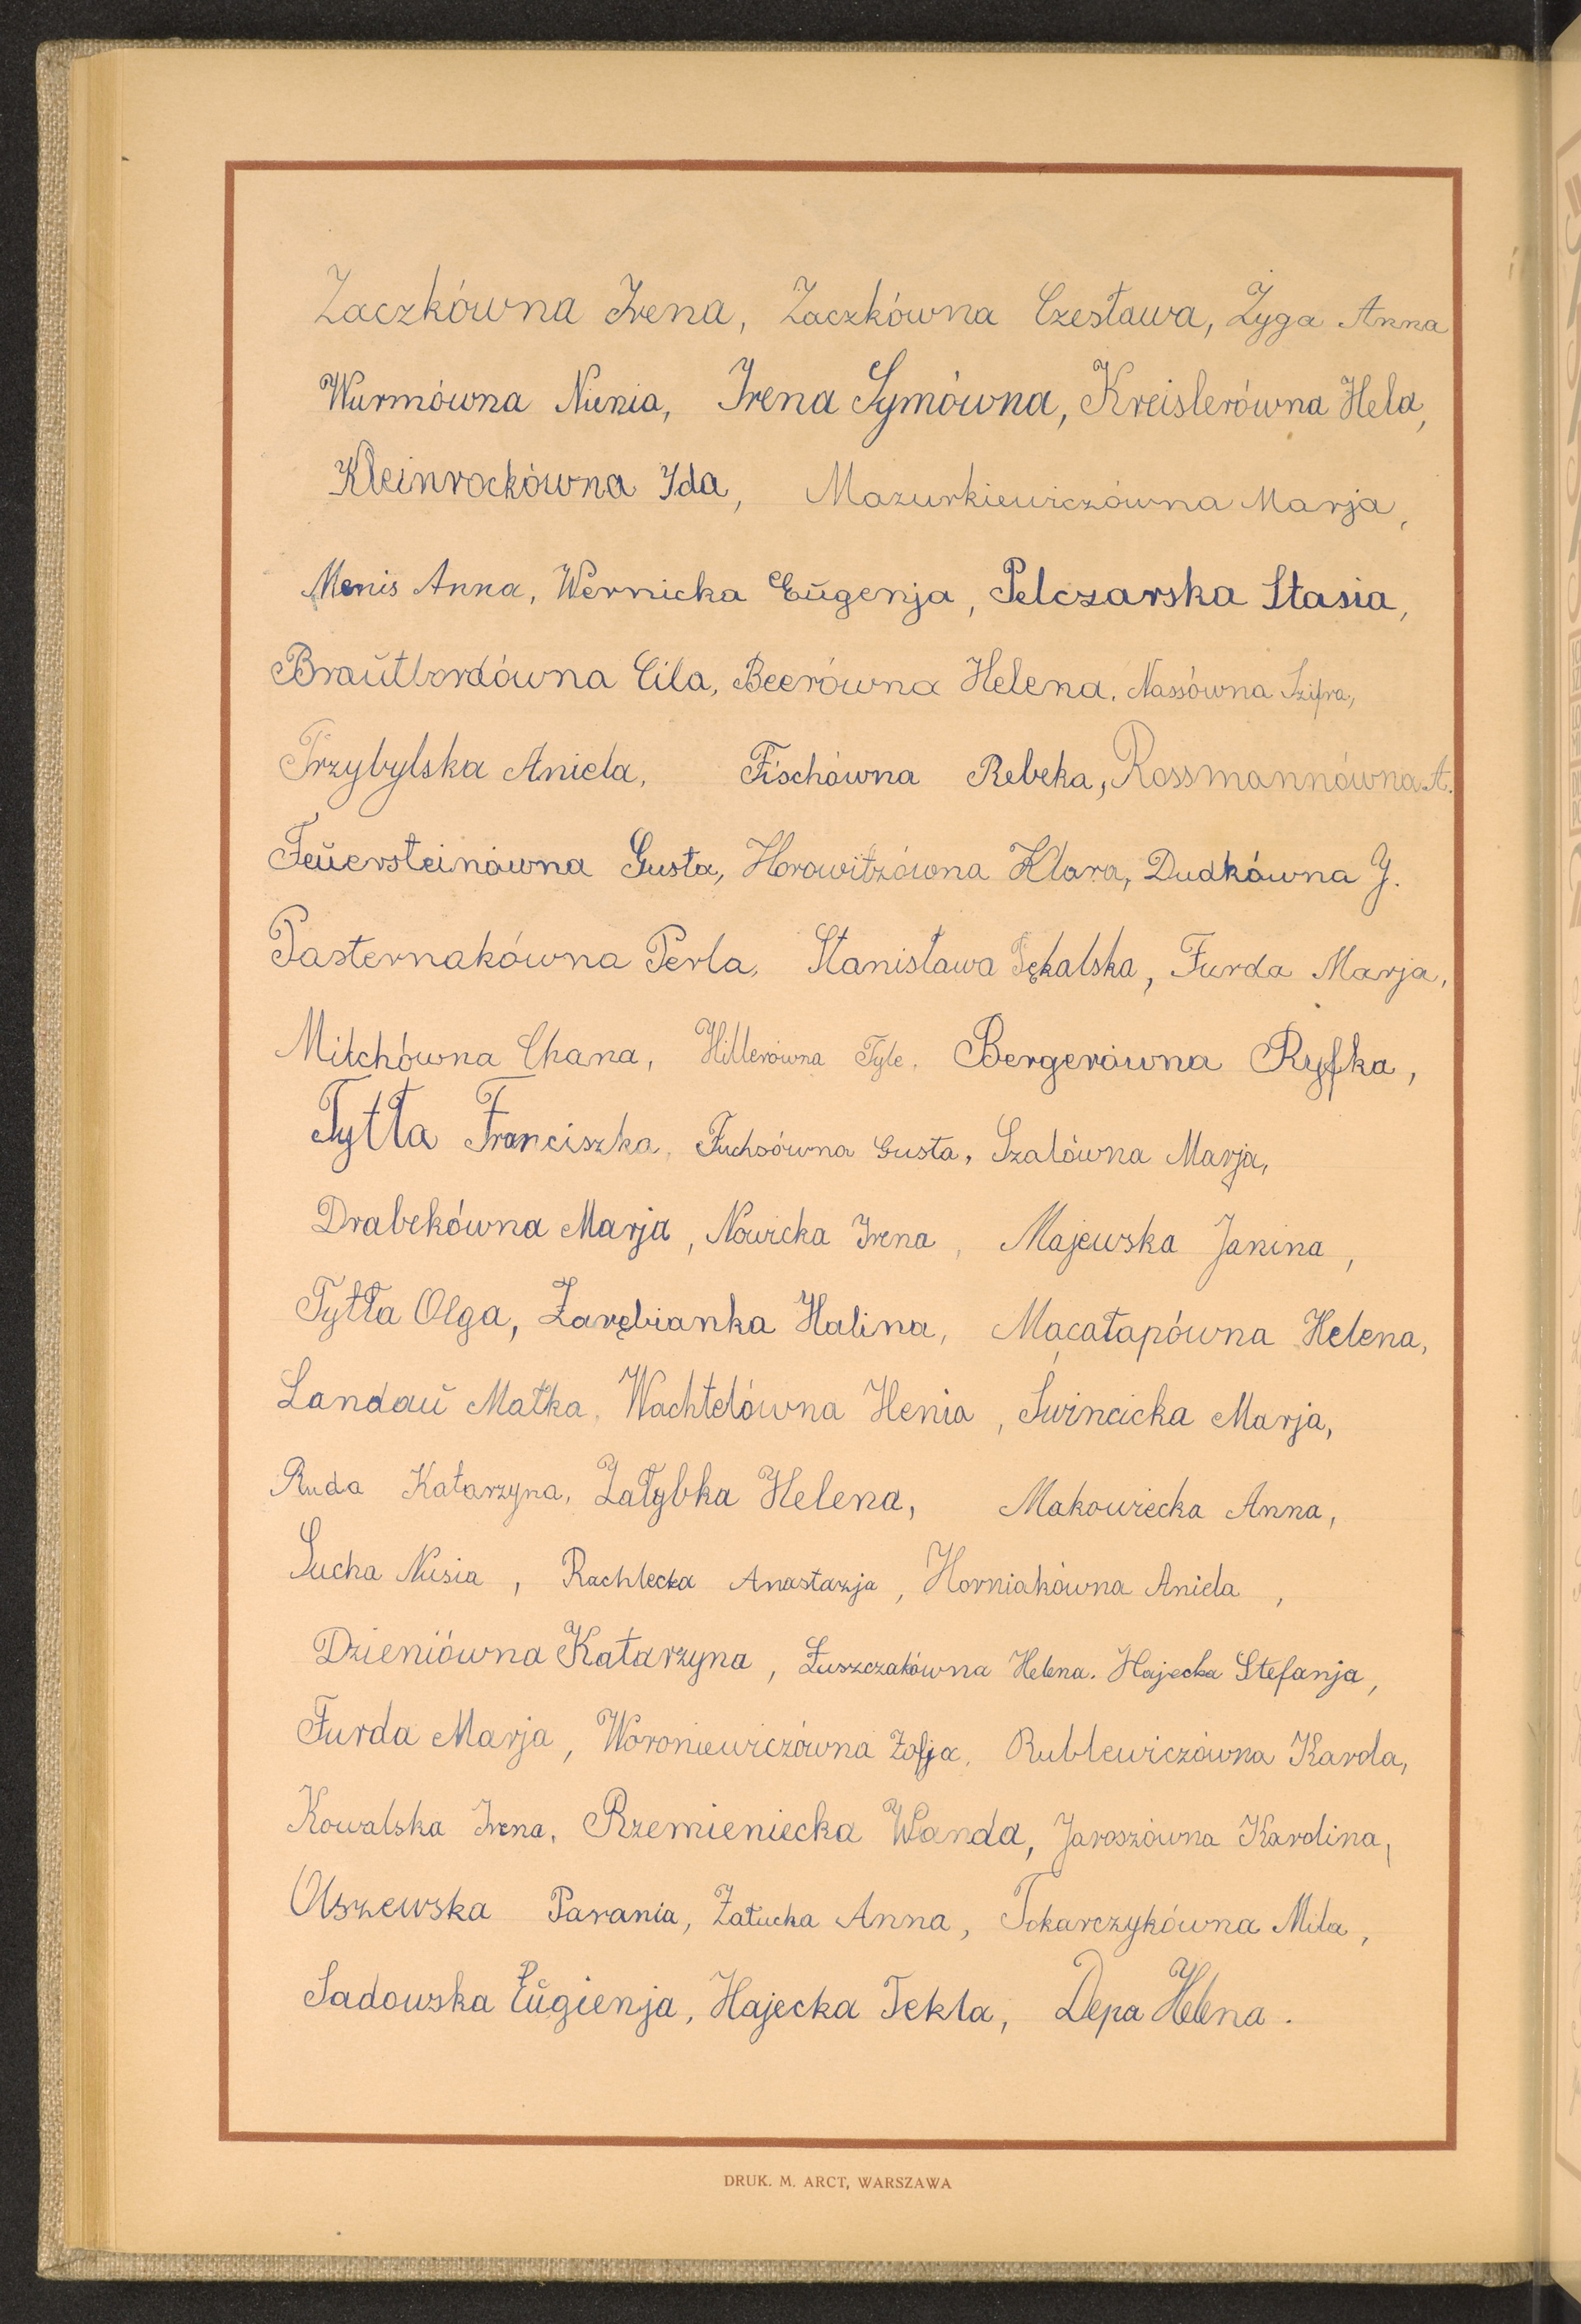 Zaczkówna Irena, Zaczkówna Czesława, Żyga Anna
Wurmówna Niunia, Irena Symówna, Kreislerówna Hela,
Kleinrockówna Ida, Mazurkiewiczówna Marja,
Menis Anna, Wernicka Eugenja, Pelczarska Stasia,
Brautbordówna Cila, Beerówna Helena, Nassówna Szifra,
Przybylska Aniela, Fischówna Rebeka, Rossmannówna A.
Feuersteinówna Gusta, Horowitzówna Klara, Dudkówna J.
Pasternakówna Perla, Stanisława Sękalska, Furda Marja,
Milchówna Chana, Hillerówna Tyle, Bergerówna Ryfka,
Tytła Franciszka, Fuchsówna Gusta, Szalówna Marja,
Drabekówna Marja, Nowicka Irena, Majewska Janina,
Tytła Olga, Zarębianka Halina, Macałapówna Helena,
Landau Matka, Wachtelówna Henia, Świncicka Marja,
Ruda Katarzyna, Załybka Helena, Makowiecka Anna,
Sucha Nusia, Rachlecka Anastazja, Horniakówna Aniela,
Dzieniówna Katarzyna, Łuszczakówna Helena. Hajecka Stefanja,
Furda Marja, Woroniewiczówna Zofja, Rublewiczówna Karola,
Kowalska Irena, Rzemieniecka Wanda, Jaroszówna Karolina,
Olszewska Parania, Załucka Anna, Tokarczykówna Mila,
Sadowska Eugienja, Hajecka Tekla, Depa Helena.
DRUK. M. ARCT, WARSZAWA